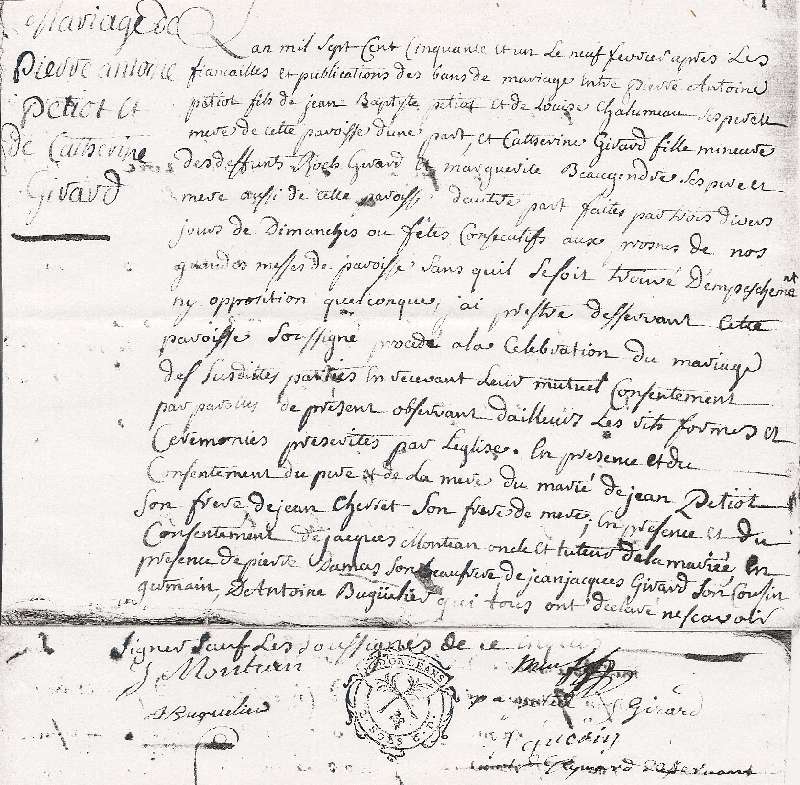 Mariage de
Pierre antoine
Petiot et
de Catherine
Girard
L'an mil Sept Cent Cinquante et un Le neuf fevrier apres Les
fiancailles et publications des bans de mariage entre pierre Antoine
petiot fils de jean Baptyste petiot et de Louise Chalumeau Ses pere et
mere de cette paroisse d'une part, et Catherine Girard fille mineure
des deffunts Roch Girard et marguerite Beaugendre Ses pere et
mere aussi de cette paroisse d'autre part faites par trois divers
jours de Dimanches ou fêtes Consecutifs aux prosnes de nos
grandes messes de paroisse Sans quil Se soit trouvé D'empeschement
ny opposition quelconque, j'ai prestre desservant Cette
paroisse Soussigné procédé a la Celebration du mariage
des Susdittes parties En recevant Leur mutuel Consentement
par parolles de présent observant d'ailleurs Les rits formes et
Cérémonies prescrites par L'eglise. En presence et du
Consentement du pere et de La mere du marié de jean Petiot
Son frere de jean Son frere de mere, En présence et du
Consentement de jacques Montian oncle et tuteur de la mariée En
presence de pierre Damas Son beaufrere de jean jacques Girard Son Cousin
germain, De Antoine Buguelier qui tous ont déclaré ne scavoir
Signer Sauf Les soussignés de ce enquis
J Montian
A Buguelier
Girard
desservant
ORLEANS